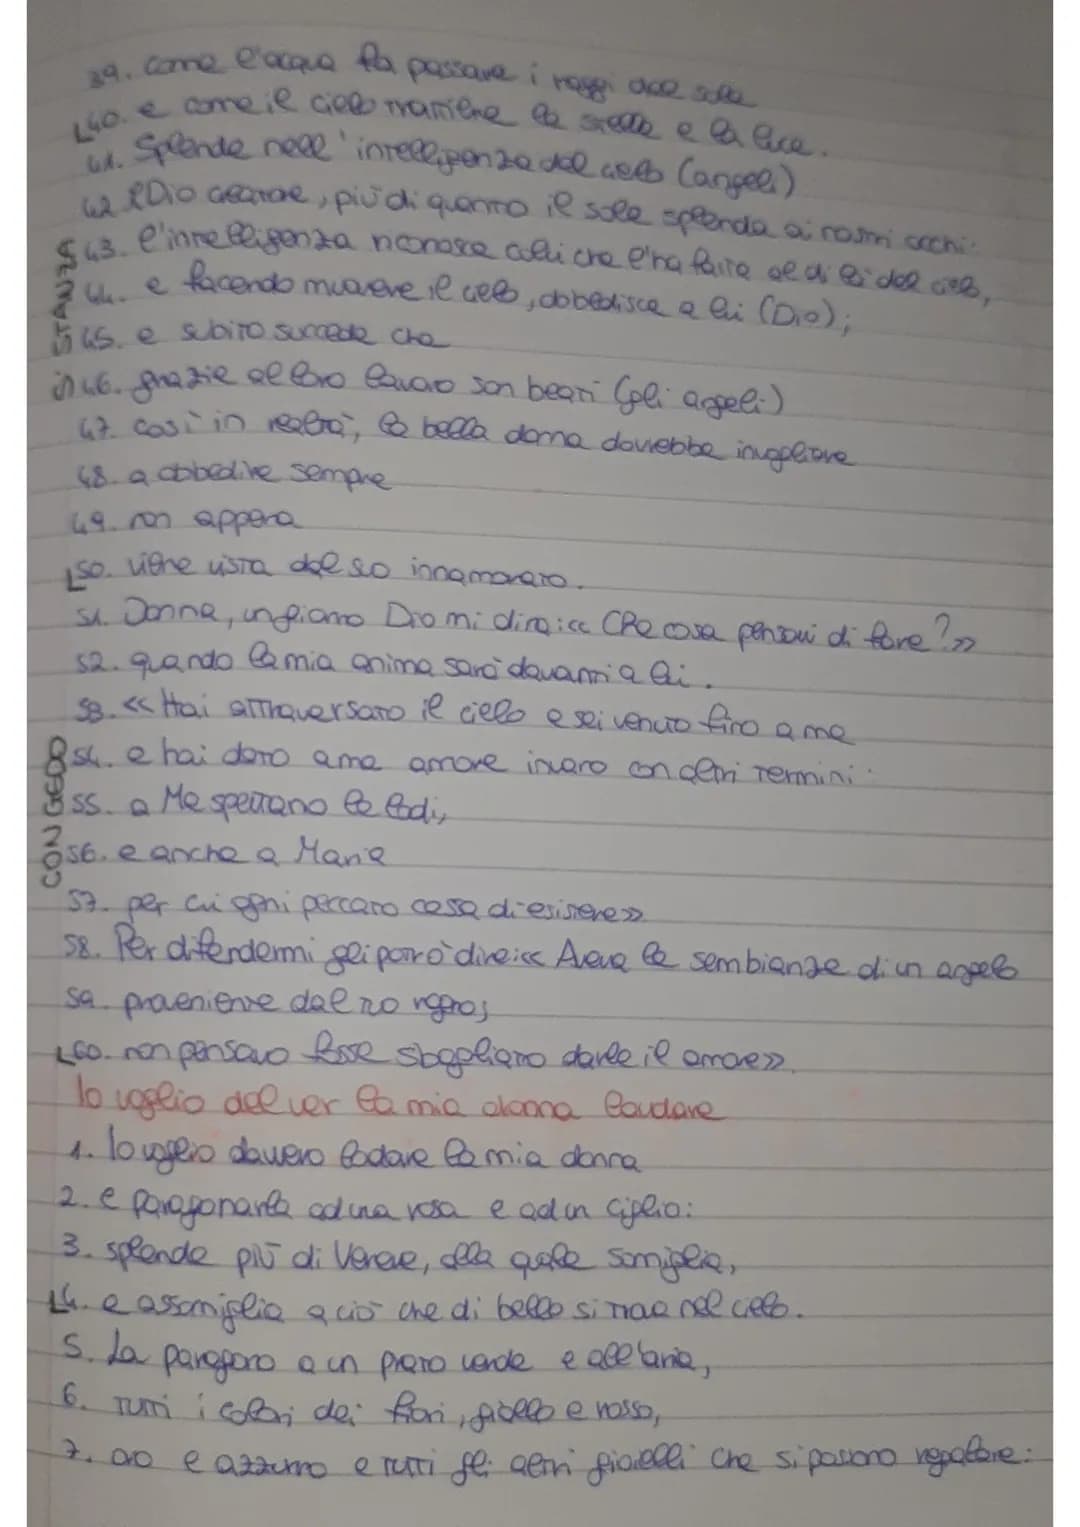 39. come l'acqua fa passare i raggi del sole
40. e come il cielo mantiene le stelle e la luce.
41. Splende nell'intelligenza del cielo (angeli)
42. Dio creatore, più di quanto il sole splenda ai nostri occhi:
STANZA 5 43. l'intelligenza riconosce colui che l'ha fatta al di là del cielo,
44. e facendo muovere il cielo, obbedisce a lui (Dio);
45. e subito succede che
46. grazie al loro lavoro son beati (gli angeli)
47. così in realtà, la bella donna dovrebbe invogliare
48. a obbedire sempre
49. non appena
50. viene vista dal suo innamorato.
51. Donna, un giorno Dio mi dirà: << Che cosa pensavi di fare? >>
52. quando la mia anima sarà davanti a lui.
53. << Hai attraversato il cielo e sei venuto fino a me
54. e hai dato a me amore invano con altri termini:
CONGEDO 55. a Me spettano le lodi,
56. e anche a Maria
57. per cui ogni peccato cessa di esistere >>
58. Per difendermi gli potrò dire: << Aveva le sembianze di un angelo
59. proveniente dal tuo regno;
60. non pensavo fosse sbagliato darle il amore >>.
Io voglio del ver la mia donna laudare
1. Io voglio davvero lodare la mia donna
2. e paragonarla ad una rosa e ad un giglio:
3. splende più di Venere, alla quale somiglia,
4. e assomiglia a ciò che di bello si trova nel cielo.
5. La paragono a un prato verde e all'aria,
6. tutti i colori dei fiori, giallo e rosso,
7. oro e azzurro e tutti gli altri gioielli che si possono regalare: